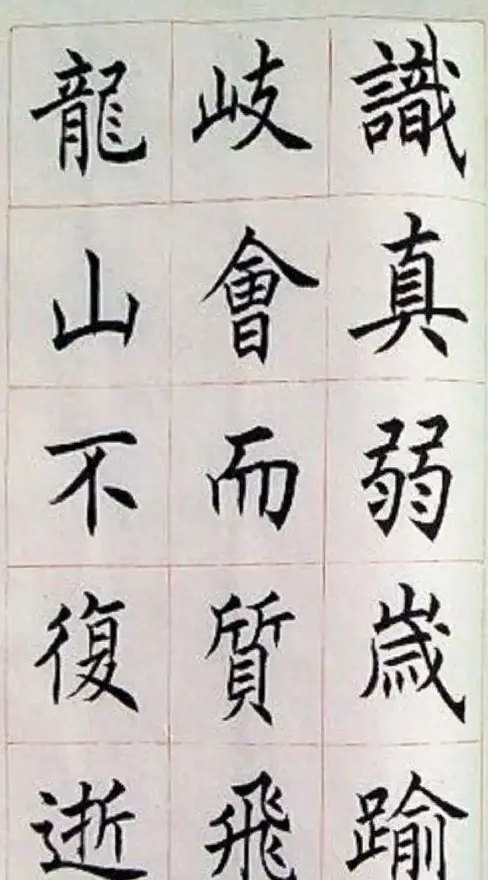 識真弱歲踰
岐會而質飛
龍山不復逝